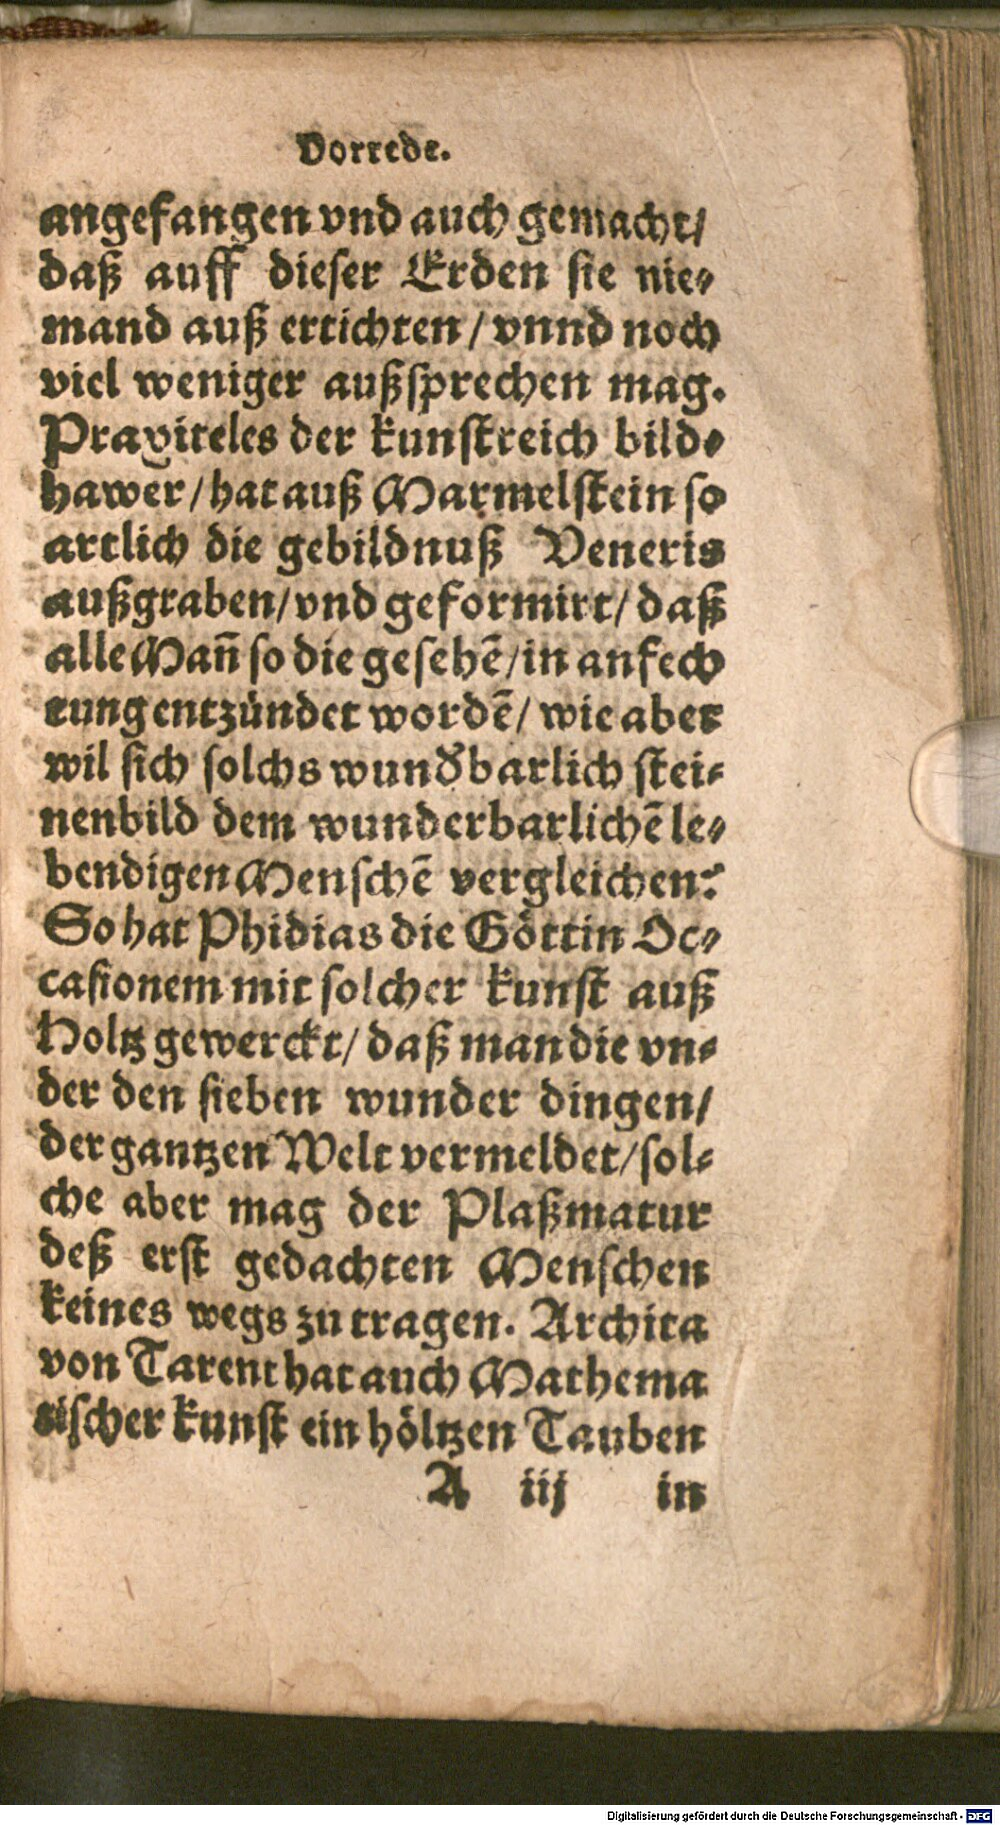 Vorrede.
angefangen vnd auch gemacht/
daß auff dieser Erden sie nie-
mand auß ertichten / vnnd noch
viel weniger außsprechen mag.
Praxiteles der kunstreich bild-
hawer / hat auß Marmelstein so
artlich die gebildnuß Veneris
außgraben / vnd geformirt / daß
alle Mañ so die gesehē / in anfech
tung entzündet wordē / wie aber
wil sich solchs wunďbarlich stei-
nenbild dem wunderbarlichē le-
bendigen Menschē vergleichen?
So hat Phidias die Göttin Oc-
casionem mit solcher kunst auß
Holtz gewerckt / daß man die vn-
der den sieben wunder dingen /
der gantzen Welt vermeldet / sol-
che aber mag der Plaßmatur
deß erst gedachten Menschen
keines wegs zu tragen. Archita
von Tarent hat auch Mathema
tischer kunst ein höltzen Tauben
A iij in
Digitalisierung gefördert durch die Deutsche Forschungsgemeinschaft - DFG